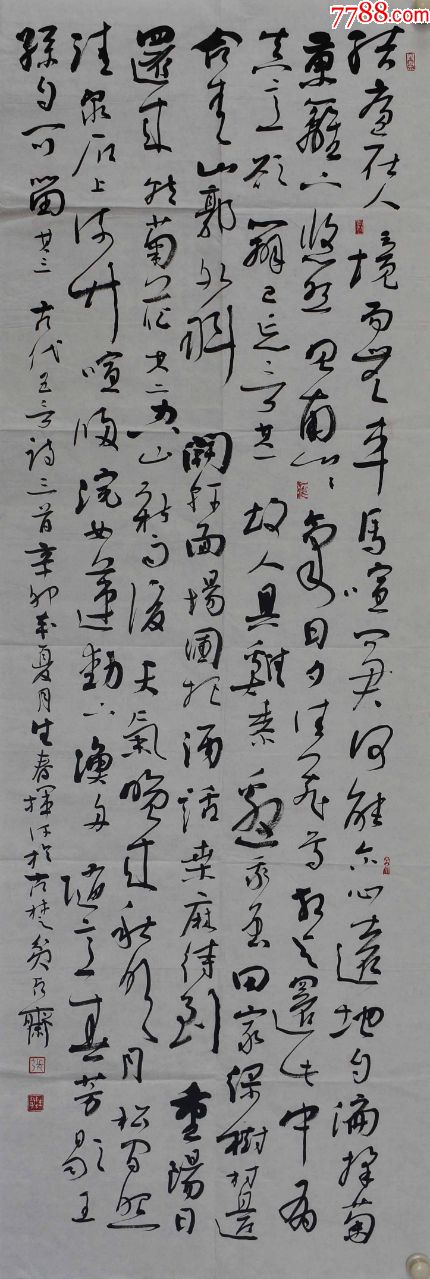 7788.com
結廬在人境而無車馬喧問君何能尔心遠地自偏採菊
東籬下悠然見南山山氣日夕佳飛鳥相與還此中有
真意欲辯已忘言其一故人具雞黍邀我至田家綠樹村邊
合青山郭外斜開軒面場圃把酒話桑麻待到重陽日
還來就菊花其二空山新雨後天氣晚來秋明月松間照
清泉石上流竹喧歸浣女蓮動下漁舟隨意春芳歇王
孫自可留其三古代五言詩三首辛卯年夏月生春揮汗於古楚齋